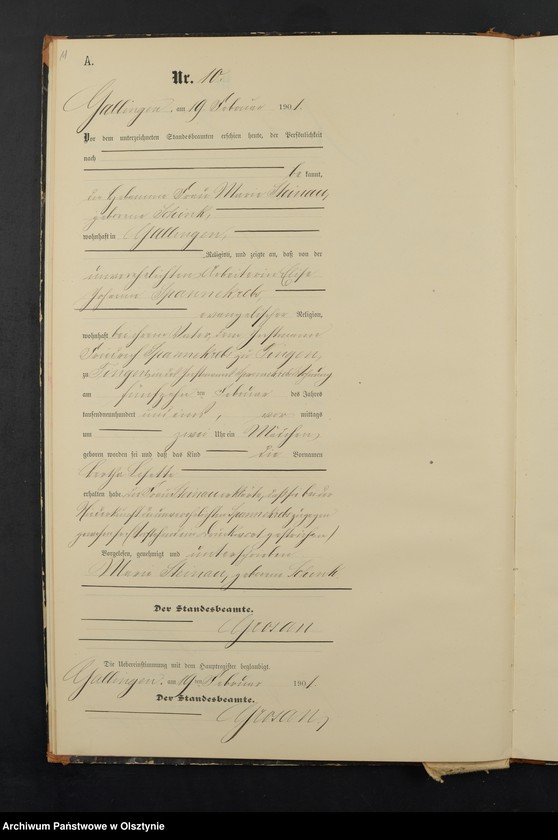 A.
Nr. 10.
Gallingen, am 19. Februar 1901.
Vor dem unterzeichneten Standesbeamten erschien heute, der Persönlichkeit
nach
be kannt,
die Hebamme Frau Marie Steinau,
geborene
wohnhaft in Gallingen,
Religion, und zeigte an, daß von der
unverehelichten Arbeiterin
Johanna Spannekrebs,
evangelischer Religion,
wohnhaft bei ihrem Vater, dem
Spannekrebs zu
zu
am fünfzehn ten Februar des Jahres
tausendneunhundert und eins, vor mittags
um zwei Uhr ein Mädchen,
geboren worden sei und daß das Kind die Vornamen
Bertha
erhalten habe. Die Frau Steinau erklärte, daß sie bei der
Niederkunft der unverehelichten Spannekrebs zugegen
gewesen sei.
Vorgelesen, genehmigt und unterschrieben
Marie Steinau, geborene
Der Standesbeamte.
Grosan
Die Uebereinstimmung mit dem Hauptregister beglaubigt.
Gallingen, am 19ten Februar 1901.
Der Standesbeamte.
Grosan,
Archiwum Państwowe w Olsztynie